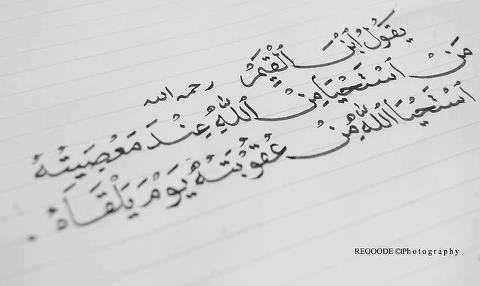 يَقُولُ ٱبْنُ ٱلْقَيِّمُ رحمه الله
مَنْ ٱسْتَحْيَا مِنْ ٱللّٰهِ عِنْدَ مَعْصِيَتِهُ
ٱسْتَحْيَا ٱللّٰهُ مِنْ عُقُوْبَتِهُ يَوْمَ يَلْقَاهْ .
REOOODE ©iPhotography